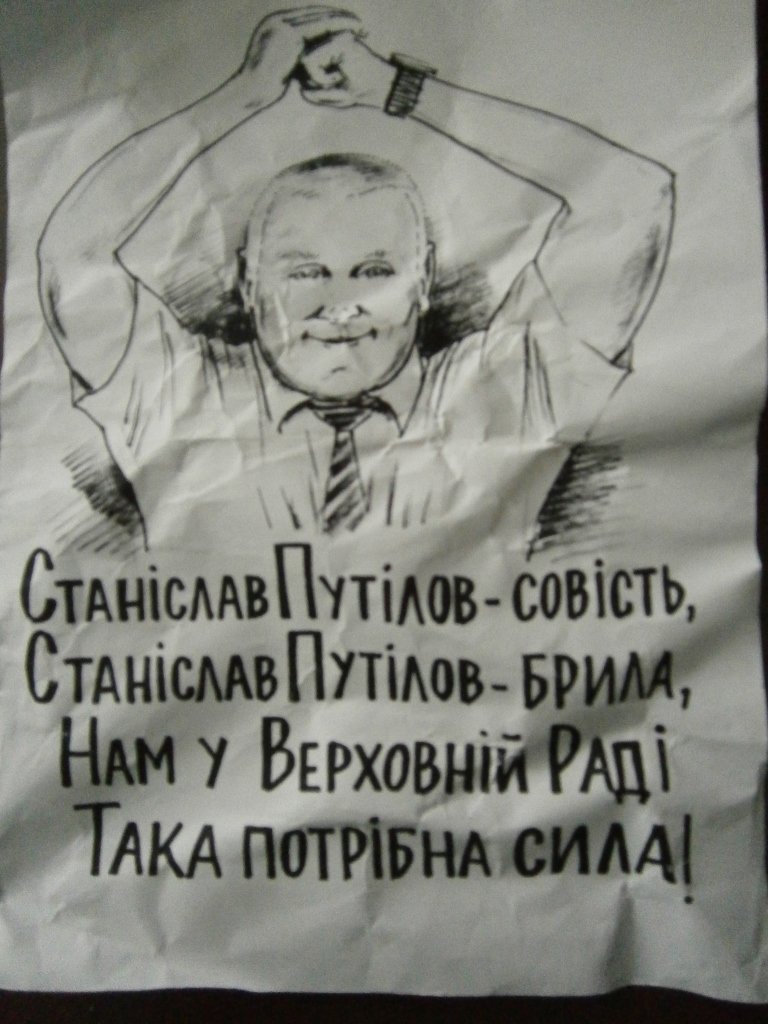 Станіслав Путілов - совість,
Станіслав Путілов - брила,
Нам у Верховній Раді
Така потрібна сила!